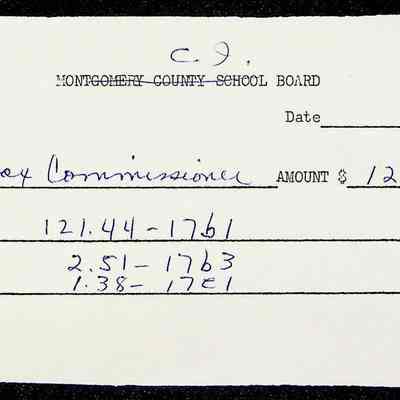 C.I.
MONTGOMERY COUNTY SCHOOL BOARD
Date
Commissioner AMOUNT $ 12
121.44 - 17b1
2.51 - 17b3
1.38 - 17C1